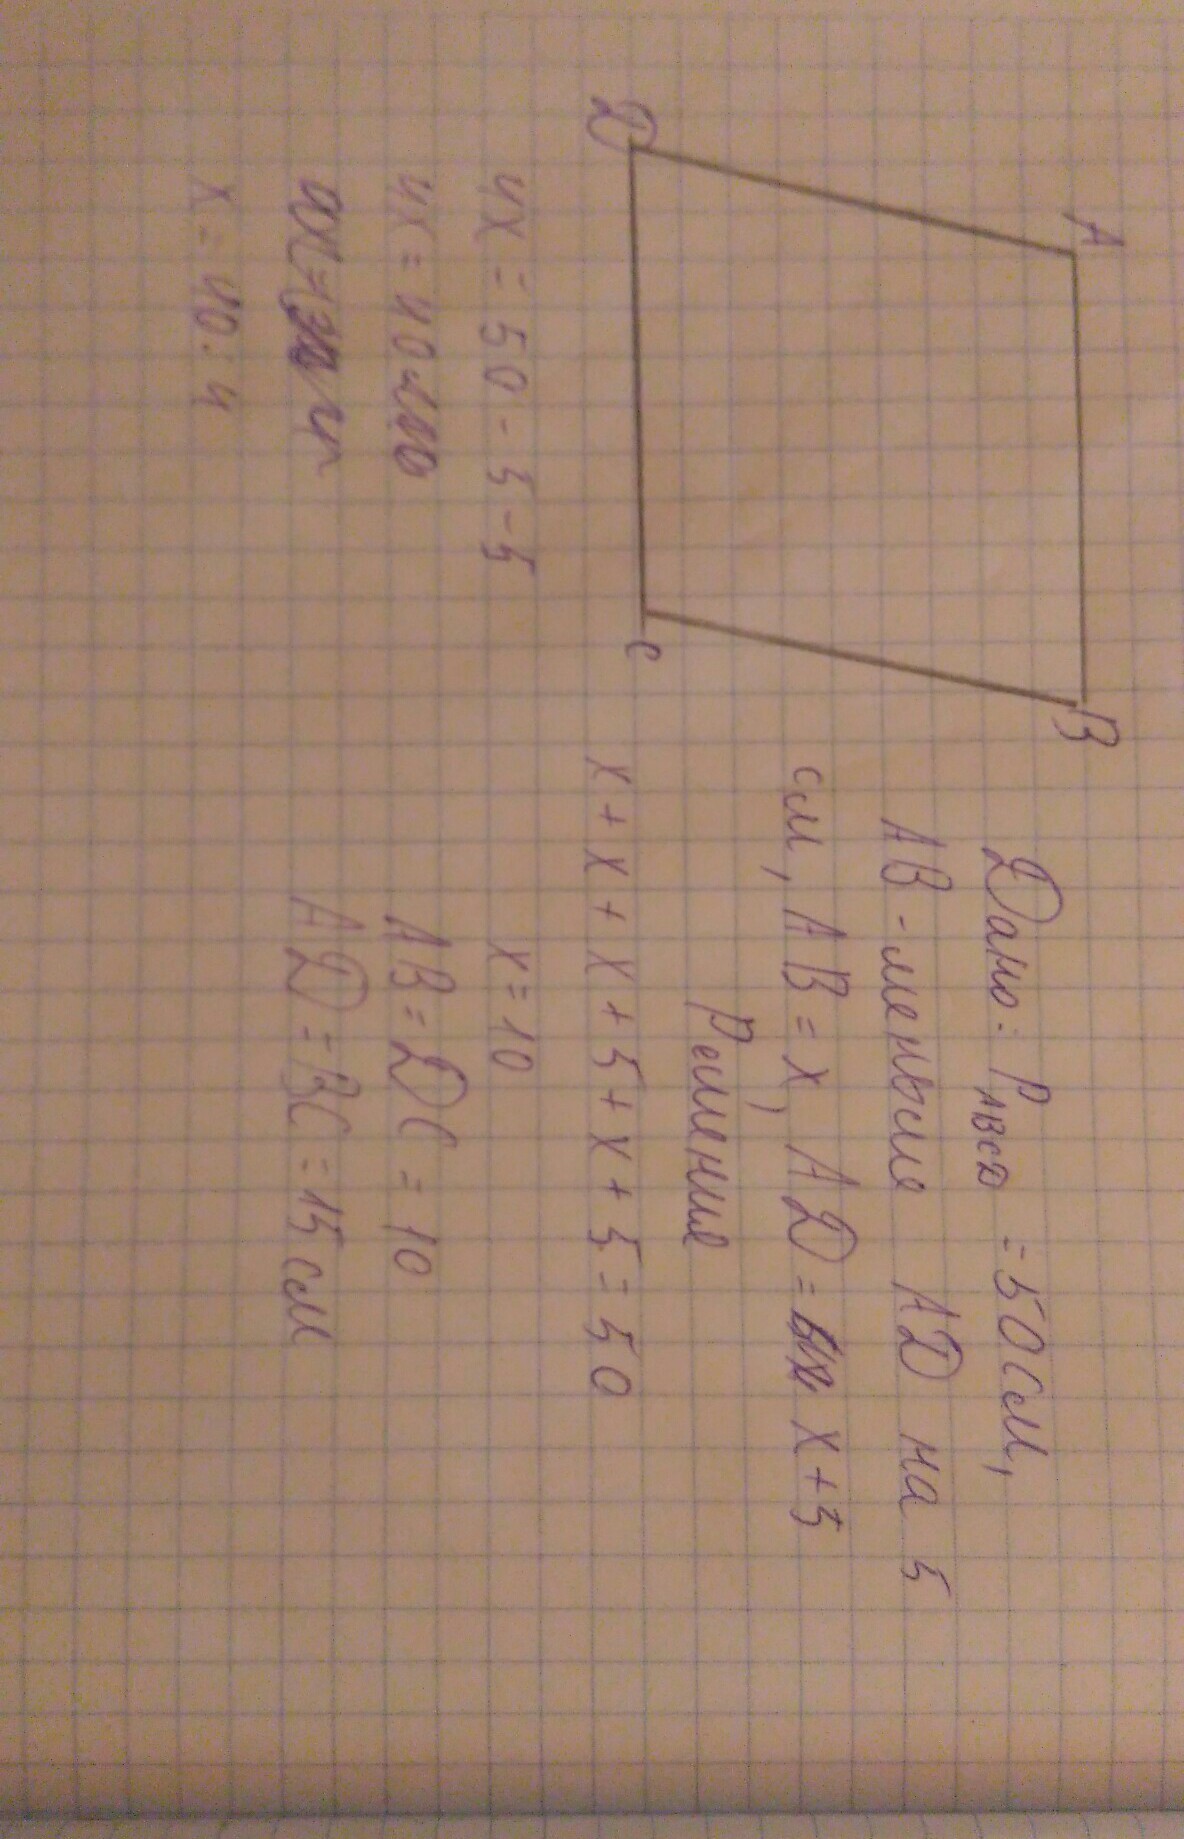 A
B
D
C
Дано: P ABCD = 50 см,
AB - меньше AD на 5
см, AB = x, AD = x + 5
Решение
x + x + x + 5 + x + 5 = 50
4x = 50 - 5 - 5
4x = 40
x = 40 : 4
x = 10
AB = DC = 10
AD = BC = 15 см